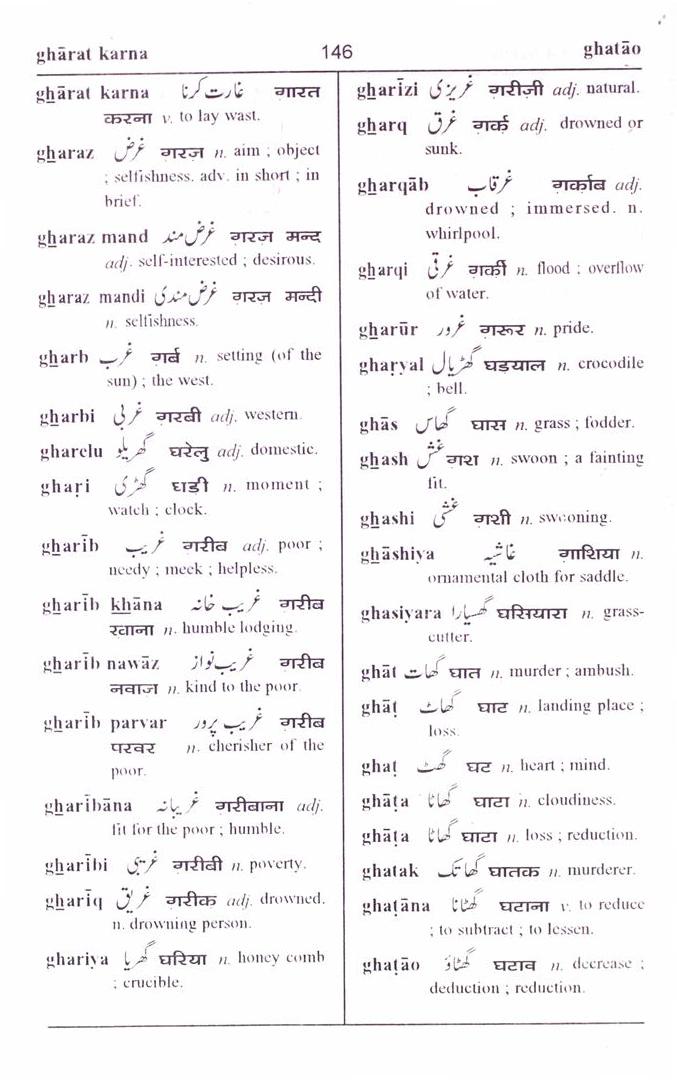 ghārat karna 146 ghatāo
ghārat karna غارت کرنا ग़ारत
करना v. to lay wast.
gharaz غرض ग़रज़ n. aim ; object
; selfishness. adv. in short ; in
brief.
gharaz mand غرض مند ग़रज़ मन्द
adj. self-interested ; desirous.
gharaz mandi غرض مندی ग़रज़ मन्दी
n. selfishness.
gharb غرب ग़र्ब n. setting (of the
sun) ; the west.
gharbi غربی ग़रबी adj. western.
gharelu گھریلو घरेलु adj. domestic.
ghari گھڑی घडी n. moment ;
watch ; clock.
gharīb غریب ग़रीब adj. poor ;
needy ; meek ; helpless.
gharīb khāna غریب خانہ ग़रीब
ख़ाना n. humble lodging.
gharīb nawāz غریب نواز ग़रीब
नवाज n. kind to the poor.
gharīb parvar غریب پرور ग़रीब
परवर n. cherisher of the
poor.
gharībāna غریبانہ ग़रीबाना adj.
fit for the poor ; humble.
gharībi غریبی ग़रीबी n. poverty.
gharīq غریق ग़रीक adj. drowned.
n. drowning person.
ghariya گھریا घरिया n. honey comb
; crucible.
gharīzi غریزی ग़रीज़ी adj. natural.
gharq غرق ग़र्क adj. drowned or
sunk.
gharqāb غرقاب ग़र्काब adj.
drowned ; immersed. n.
whirlpool.
gharqi غرقی ग़र्की n. flood ; overflow
of water.
gharūr غرور ग़रूर n. pride.
gharyal گھڑیال घडयाल n. crocodile
; bell.
ghās گھاس घास n. grass ; fodder.
ghash غش ग़श n. swoon ; a fainting
fit.
ghashi غشی ग़शी n. swooning.
ghāshiya غاشیہ ग़ाशिया n.
ornamental cloth for saddle.
ghasiyara گھسیارا घसियारा n. grass-
cutter.
ghāt گھات घात n. murder ; ambush.
ghāṭ گھاٹ घाट n. landing place ;
loss.
ghaṭ گھٹ घट n. heart ; mind.
ghāṭa گھاٹا घाटा n. cloudiness.
ghāṭa گھاٹا घाटा n. loss ; reduction.
ghatak گھاتک घातक n. murderer.
ghaṭāna گھٹانا घटाना v. to reduce
; to subtract ; to lessen.
ghaṭāo گھٹاؤ घटाव n. decrease ;
deduction ; reduction.